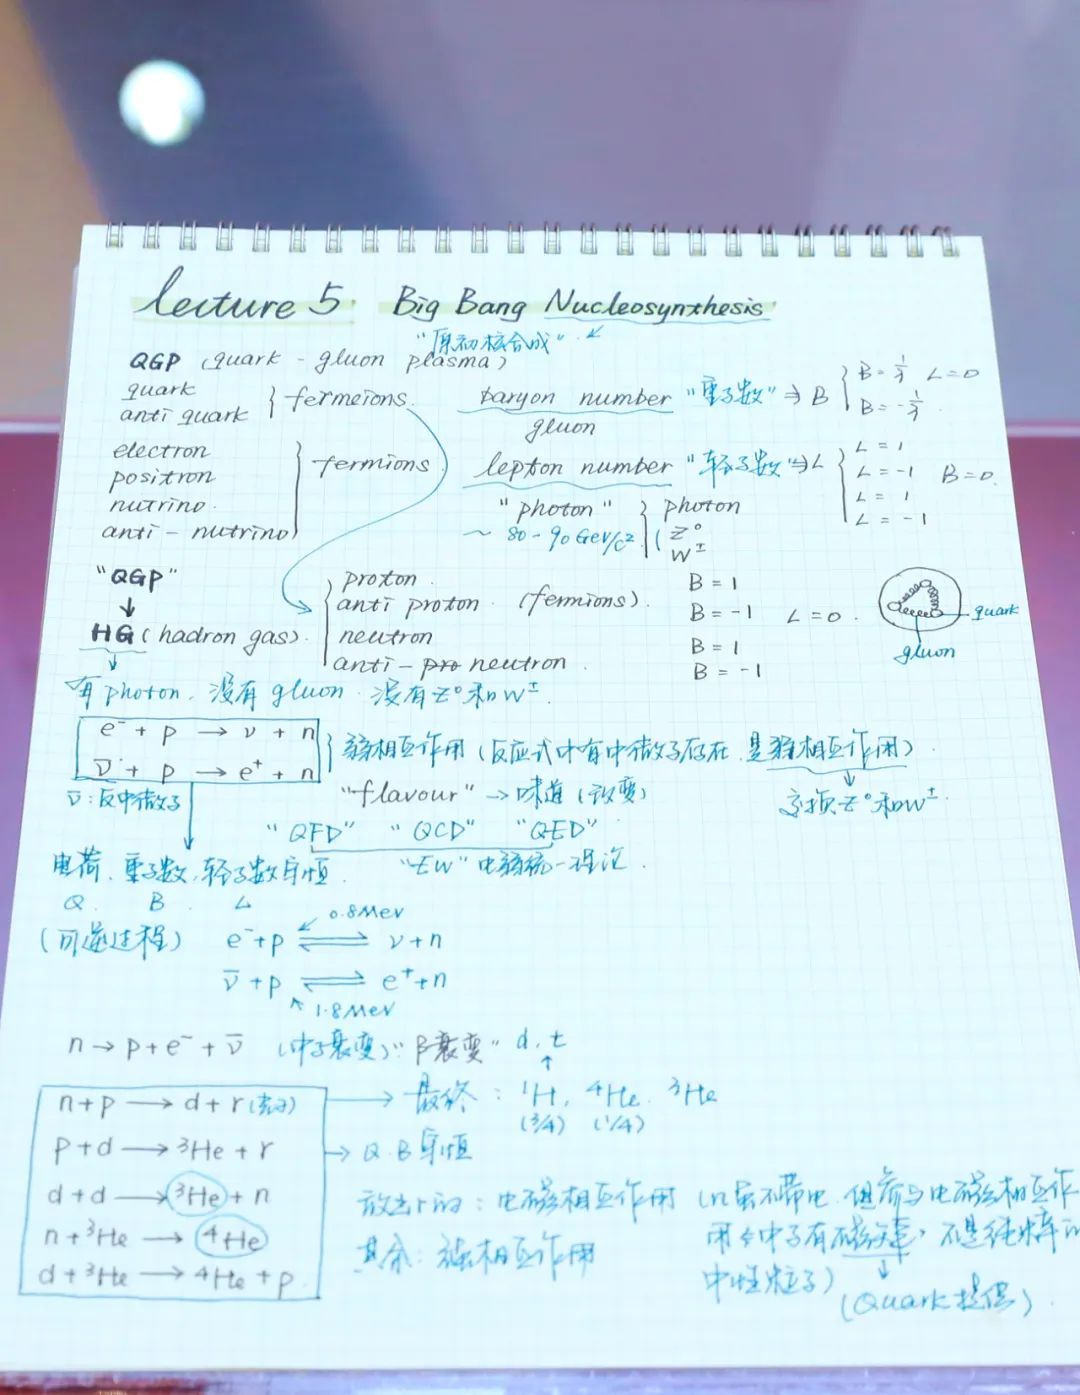 lecture 5 Big Bang Nucleosynthesis
"原初核合成"
QGP (quark - gluon plasma)
quark
anti quark
fermeions
baryon number "重子数" ⇒ B
B = 1/3 L = 0
B = -1/3
gluon
electron
positron
nutrino
anti - nutrino
fermions
lepton number "轻子数" ⇒ L
L = 1
L = -1
L = 1
L = -1
B = 0
"photon"
~ 80 - 90 GeV/c²
photon
Z⁰
W±
"QGP"
↓
HG (hadron gas)
proton
anti proton (fermions)
neutron
anti - pro neutron
B = 1
B = -1 L = 0
B = 1
B = -1
quark
gluon
有 photon, 没有 gluon. 没有 Z⁰ 和 W±.
e⁻ + p → ν + n
ν̄ + p → e⁺ + n
弱相互作用 (反应式中有中微子存在, 是弱相互作用)
ν̄ : 反中微子
"flavour" → 味道 (改变)
交换 Z⁰ 和 W±
"QFD" "QCD" "QED"
电荷、重子数, 轻子数守恒
"EW" 电弱统一理论
Q B L
0.8MeV
(可逆过程) e⁻+p ⇌ ν+n
ν̄+p ⇌ e⁺+n
1.8MeV
n → p + e⁻ + ν̄ (中子衰变) "β衰变" d, t
n+p → d+r (光子)
p+d → ³He + r
d+d → ³He + n
n+³He → ⁴He
d+³He → 4He + p
→ 最终 : ¹H, ⁴He. ³He
(3/4) (1/4)
→ Q.B 守恒
放出r的 : 电磁相互作用 (n虽不带电, 但参与电磁相互作
用 中子有磁矩, 不是纯粹的
中性粒子)
其余 : 强相互作用
(Quark提供)